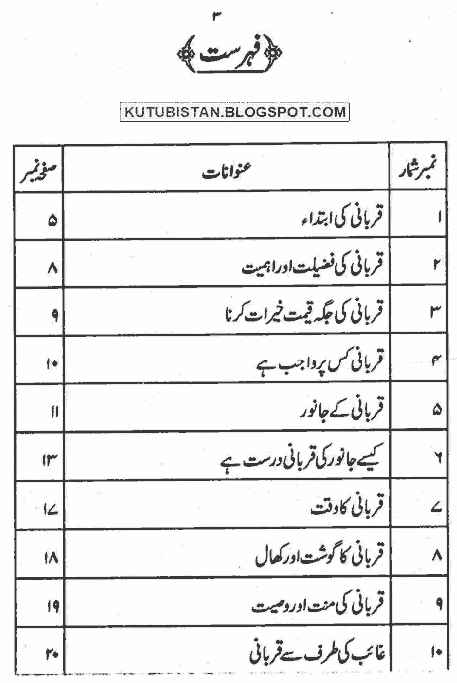 ۳
فہرست
KUTUBISTAN.BLOGSPOT.COM
نمبر شمار عنوانات صفحہ نمبر
۱ قربانی کی ابتداء ۵
۲ قربانی کی فضیلت اور اہمیت ۸
۳ قربانی کی جگہ قیمت خیرات کرنا ۹
۴ قربانی کس پر واجب ہے ۱۰
۵ قربانی کے جانور ۱۱
۶ کیسے جانور کی قربانی درست ہے ۱۳
۷ قربانی کا وقت ۱۷
۸ قربانی کا گوشت اور کھال ۱۸
۹ قربانی کی منت اور وصیت ۱۹
۱۰ غائب کی طرف سے قربانی ۲۰